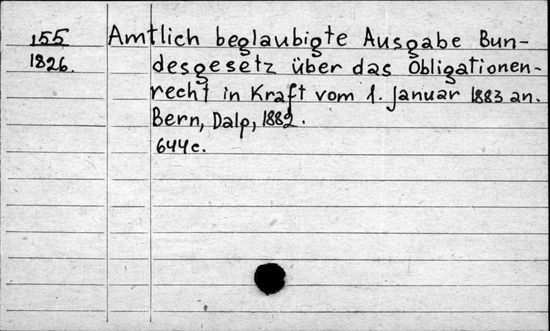 155 Amtlich beglaubigte Ausgabe Bun-
1826. desgesetz über das Obligationen-
recht in Kraft vom 1. Januar 1883 an.
Bern, Dalp, 1882.
644c.